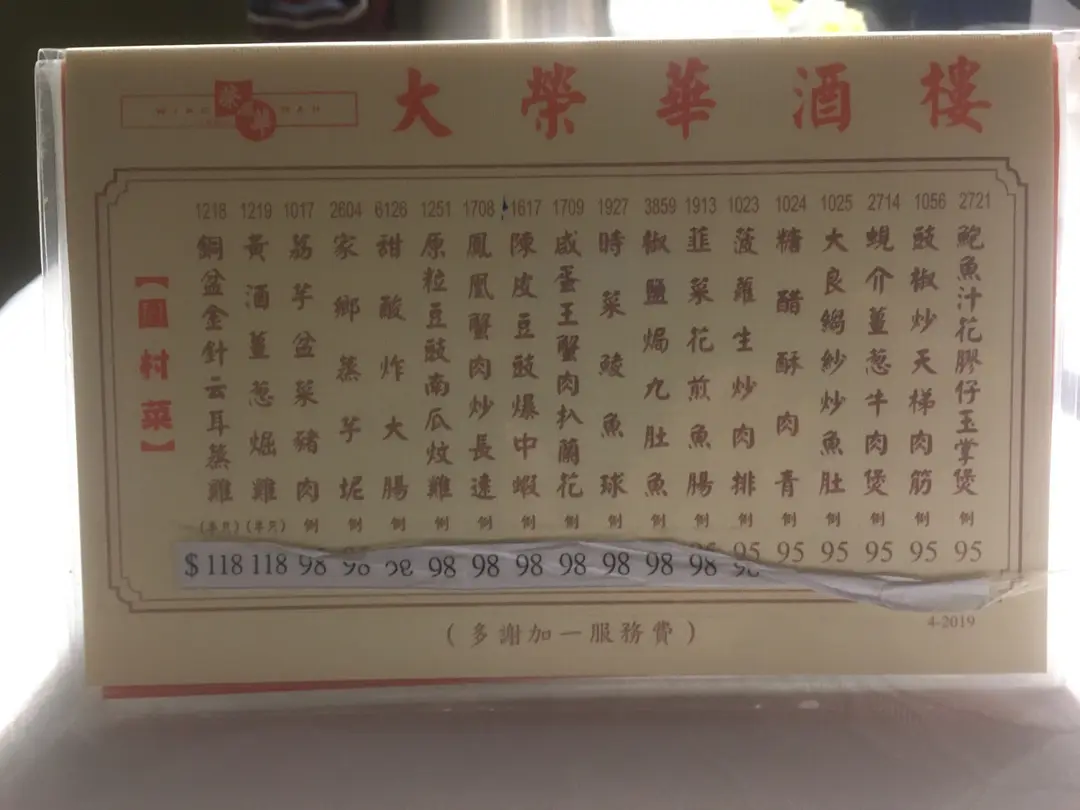 大榮華酒樓
【圍村菜】
2721 鮑魚汁花膠仔玉掌煲 例 95
1056 豉椒炒天梯肉筋 例 95
2714 蜆介薑葱牛肉煲 例 95
1025 大良縐紗炒魚肚 例 95
1024 糖醋酥肉青 例 95
1023 菠蘿生炒肉排 例 95
1913 韮菜花煎魚腸 例 98
3859 椒鹽焗九肚魚 例 98
1927 時菜鯪魚球 例 98
1709 咸蛋王蟹肉扒蘭花 例 98
1617 陳皮豆豉爆中蝦 例 98
1708 鳳凰蟹肉炒長遠 例 98
1251 原粒豆豉南瓜炆雞 例 98
6126 甜酸炸大腸 例 98
2604 家鄉蒸芋坭 例 98
1017 荔芋盆菜豬肉 例 98
1219 黃酒薑葱焗雞 (半只) 118
1218 銅盆金針云耳蒸雞 (半只) $118
(多謝加一服務費)
4-2019